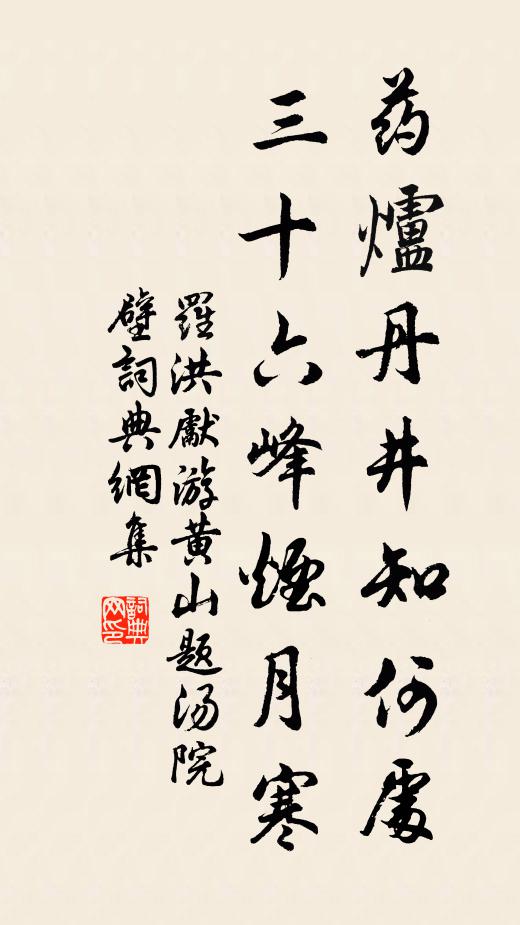 药爐丹井知何處
三十六峰煙月寒
羅洪獻游黄山題汤院
壁詞典網集
詞典
网印